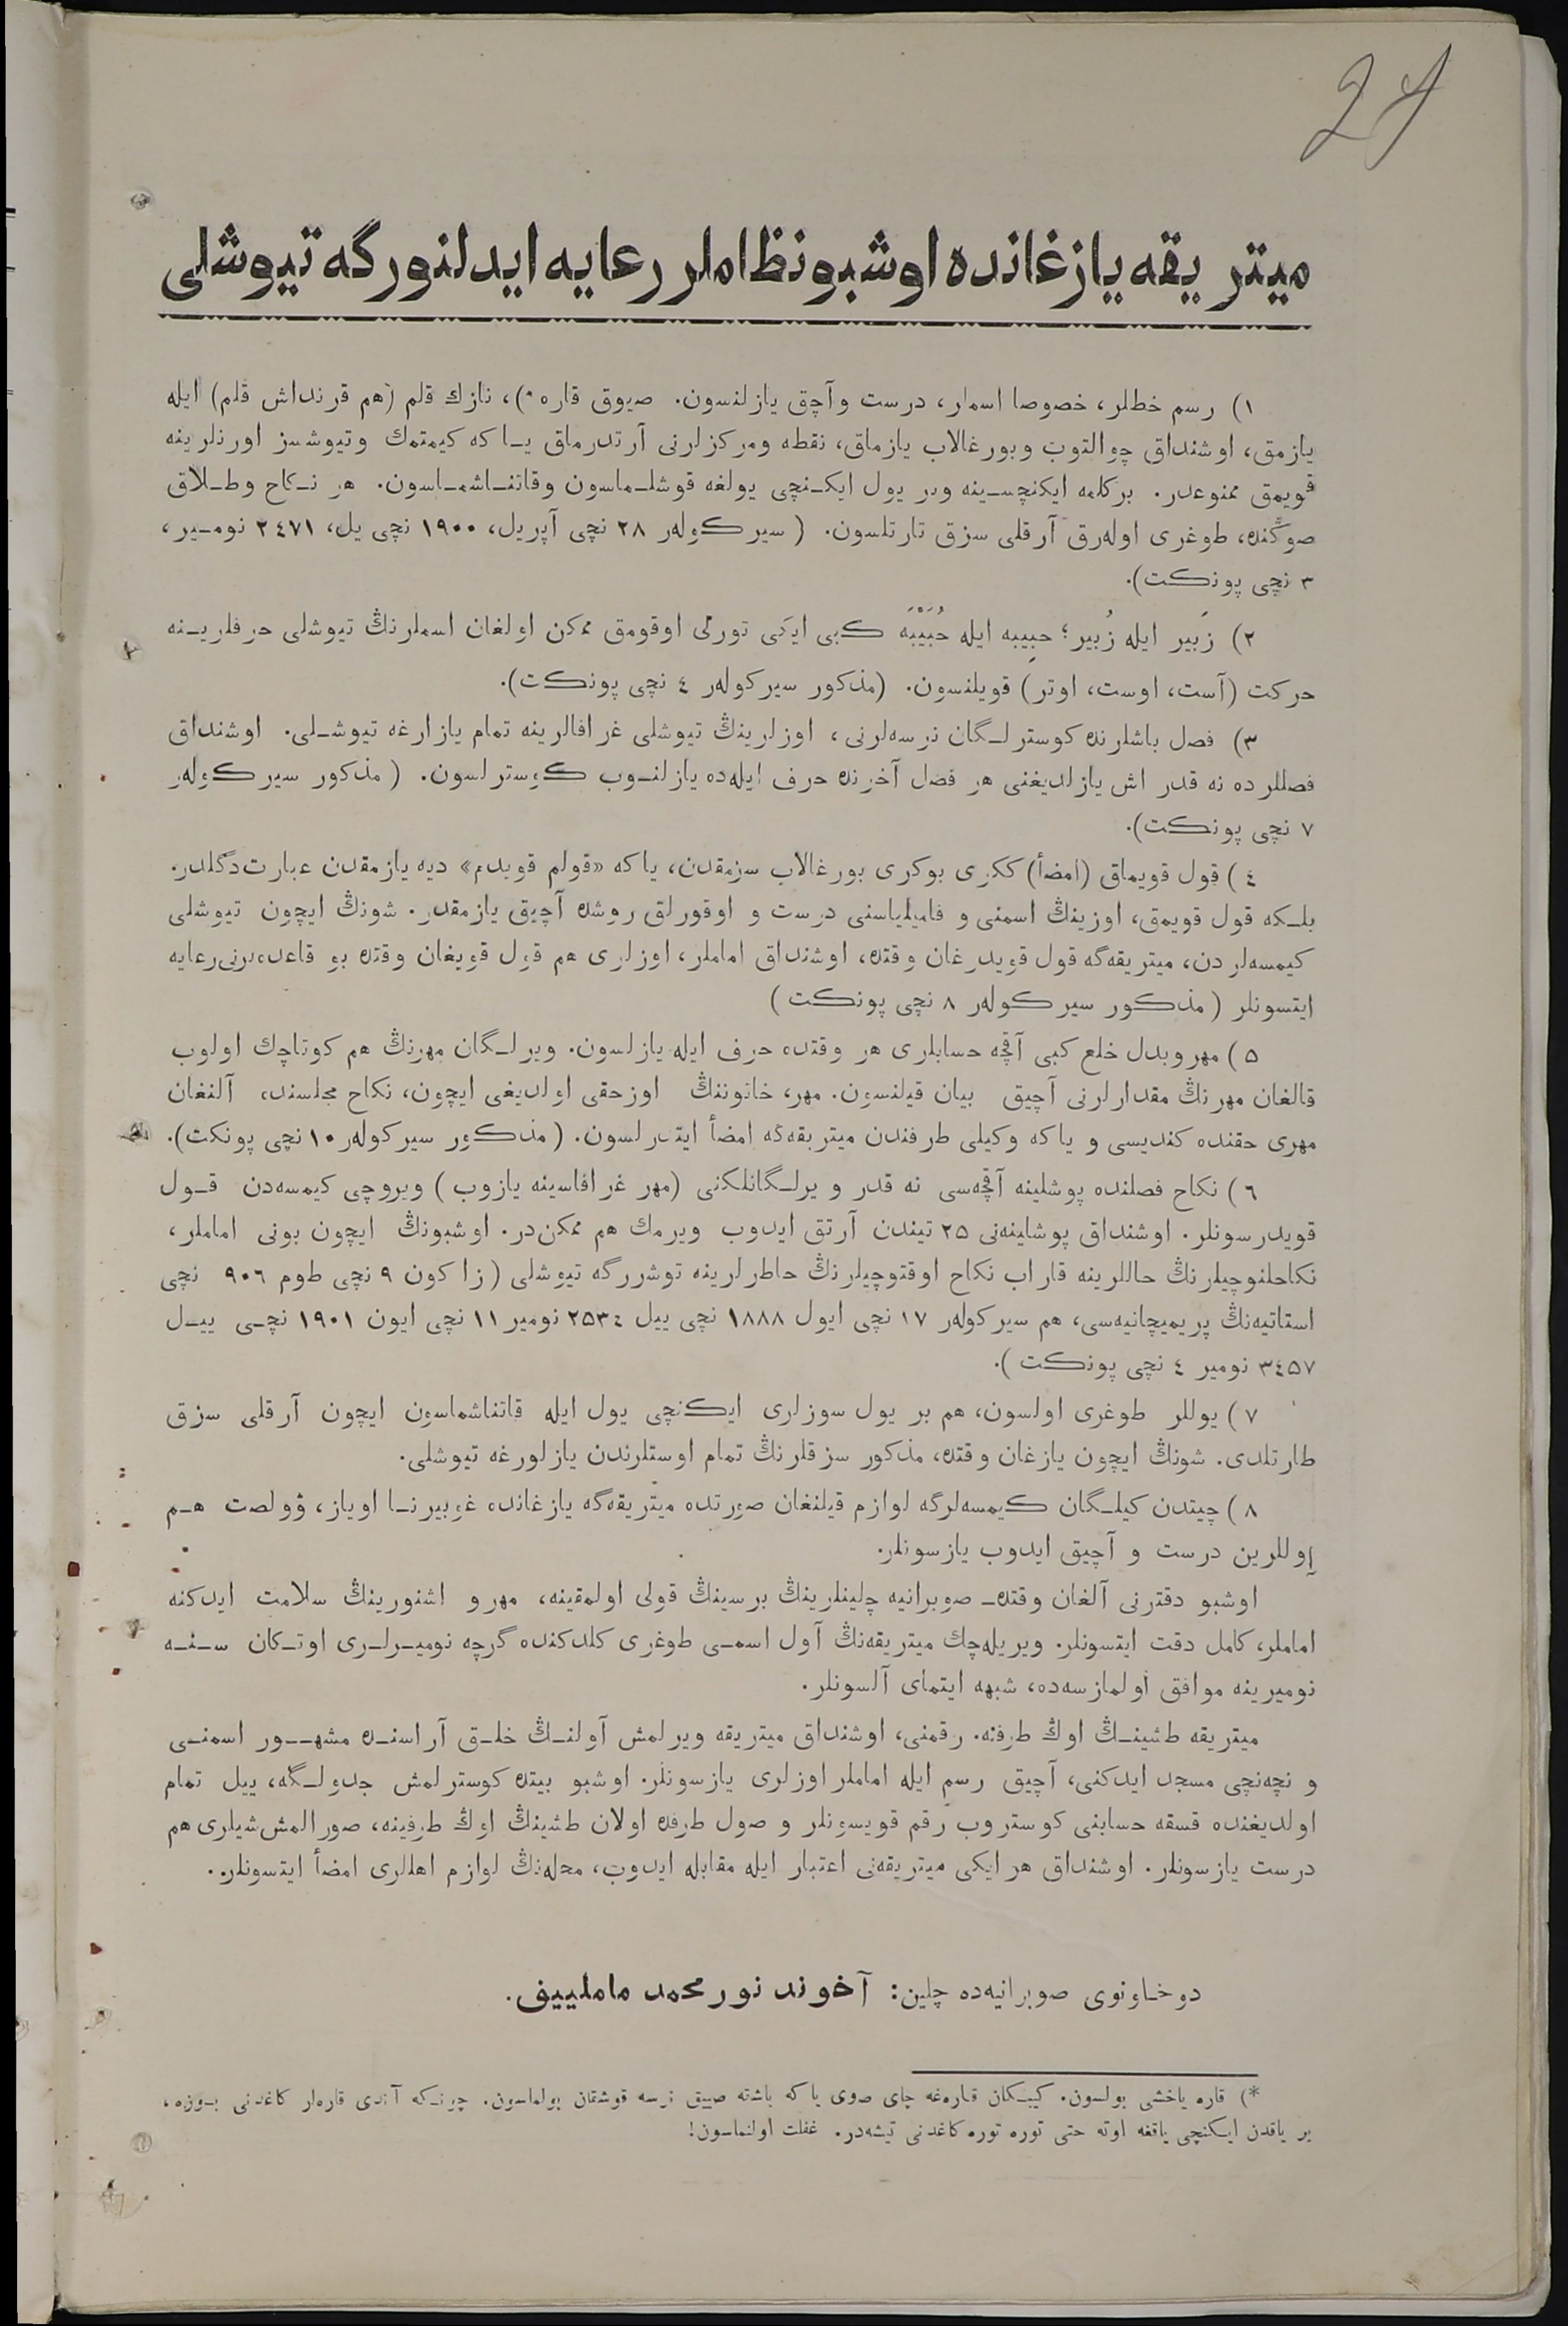 27
میتریقه یازغانده اوشبو نظاملر رعایه ایدلنورگه تیوشلی
١) رسم خطلر، خصوصا اسملر، درست وآچق یازلنسون. صیوق قاره *)، نازك قلم (هم قرنداش قلم) ایله
یازمق، اوشنداق چوالتوب وبورغالاب یازماق، نقطه ومرکزلرنی آرتدرماق یـا که کیمتمك وتیوشسز اورنلرینه
قویمق ممنوعدر. برکلمه ایکنچسـینه وبر یول ایکـنچی یولغه قوشلـماسون وقاتنـاشمـاسون. هر نـکاح وطـلاق
صوڭنده، طوغری اوله‌رق آرقلی سزق تارتلسون. ( سیرکوله‌ر ٢٨ نچی آپریل، ١٩٠٠ نچی یل، ٢٤٧١ نومـیر،
٣ نچی پونکت).
٢) زَبیر ایله زُبیر؛ حبِیبه ایله حُبَيْبَه کبی ایکی تورلی اوقومق ممکن اولغان اسملرنڭ تیوشلی حرفلریـنه
حرکت (آست، اوست، اوتر) قویلنسون. (مذکور سیرکوله‌ر ٤ نچی پونکت).
٣) فصل باشلرنده کوسترلـگان نرسه‌لرنی، اوزلرینڭ تیوشلی غرافالرینه تمام یازارغه تیوشـلی. اوشنداق
فصللرده نه قدر اش یازلدیغنی هر فصل آخرنده حرف ایله‌ده یازلنـوب کوسترلسون. ( مذکور سیرکوله‌ر
٧ نچی پونکت).
٤) قول قویماق (امضأ) ککری بوکری بورغالاب سزمقدن، یاکه «قولم قویدم» دیه یازمقدن عبارت دگلدر.
بلـکه قول قویمق، اوزینڭ اسمنی و فامیلیاسنی درست و اوقورلق روشده آچیق یازمقدر. شونڭ ایچون تیوشلی
کیمسه‌لردن، میتریقه‌گه قول قویدرغان وقتده، اوشنداق اماملر، اوزلری هم قول قویغان وقتده بو قاعده‌لرنی رعایه
ایتسونلر ( مذکور سیرکوله‌ر ٨ نچی پونکت )
٥) مهر وبدل خلع کبی آقچه حسابلری هر وقتده حرف ایله یازلسون. ویرلـگان مهرنڭ هم کوتاچك اولوب
قالغان مهرنڭ مقدارلرنی آچیق بیان قیلنسون. مهر، خاتوننڭ اوزحقی اولدیغی ایچون، نکاح مجلسنده آلنغان
مهری حقنده کندیسی و یاکه وکیلی طرفندن میتریقه‌گه امضأ ایتدرلسون. ( مذکور سیرکوله‌ر ١٠ نچی پونکت).
٦) نکاح فصلنده پوشلینه آقچه‌سی نه قدر ویرلـگانلکنی (مهر غرافاسینه یازوب) ویروچی کیمسه‌دن قـول
قویدرسونلر. اوشنداق پوشلینه‌نی ٢٥ تیندن آرتق ایدوب ویرمك هم ممکن‌در. اوشبونڭ ایچون بونی اماملر،
نکاحلنوچیلرنڭ حاللرینه قاراب نکاح اوقتوچیلرنڭ خاطرلرینه توشررگه تیوشلی (زاکون ٩ نچی طوم ٩٠٦ نچی
استاتیه‌نڭ پریمیچانیه‌سی، هم سیرکوله‌ر ١٧ نچی ایول ١٨٨٨ نچی ییل ٢٥٣٤ نومیر ١١ نچی ایون ١٩٠١ نچـی ییـل
٣٤٥٧ نومیر ٤ نچی پونکت ).
٧) یوللر طوغری اولسون، هم بر یول سوزلری ایکنچی یول ایله قاتناشماسون ایچون آرقلی سزق
طارتلدی. شونڭ ایچون یازغان وقتده، مذکور سزقلرنڭ تمام اوستلرندن یازلورغه تیوشلی.
٨) چیتدن کیلـگان کیمسه‌لرگه لوازم قیلنغان صورتده میتریقه‌گه یازغانده غوبیرنـا اویاز، ۋولصت هـم
آوللرین درست و آچیق ایدوب یازسونلر.
اوشبو دفترنی آلغان وقتده صوبرانیه چلینلرینڭ برسینڭ قولی اولمقینه، مهر و اشنورینڭ سلامت ایدکنه
اماملر، کامل دقت ایتسونلر. ویریله‌چك میتریقه‌نڭ آول اسمـی طوغری کلدکنده گرچه نومیـرلـری اوتـکان سـنـه
نومیرینه موافق اولمازسه‌ده، شبهه ایتمای آلسونلر.
میتریقه طشینـڭ اوڭ طرفنه رقمنی، اوشنداق میتریقه ویرلمش آولنـڭ خلـق آراسنـده مشهـور اسمنـی
و نچه‌نچی مسجد ایدکنی، آچیق رسم ایله اماملر اوزلری یازسونلر. اوشبو بیتده کوسترلمش جدولـگه، ییل تمام
اولدیغنده قسقه حسابنی کوستروب رقم قویسونلر و صول طرفده اولان طشینڭ اوڭ طرفینه، صورالمش شیلری هم
درست یازسونلر. اوشنداق هر ایکی میتریقه‌نی اعتبار ایله مقابله ایدوب، محله‌نڭ لوازم اهللری امضأ ایتسونلر.
دوخاونوی صوبرانیه‌ده چلین: آخوند نورمحمد ماملییف.
*) قاره یاخشی بولسون. کیبـکان قاره‌غه چای صوی یاکه باشته صییق نرسه قوشقان بولماسون. چونـکه آندی قاره‌لر کاغدنی بـوزه،
بر یاقدن ایکنچی یاقغه اوته حتی توره توره کاغدنی تیشه‌در. غفلت اولنماسون!